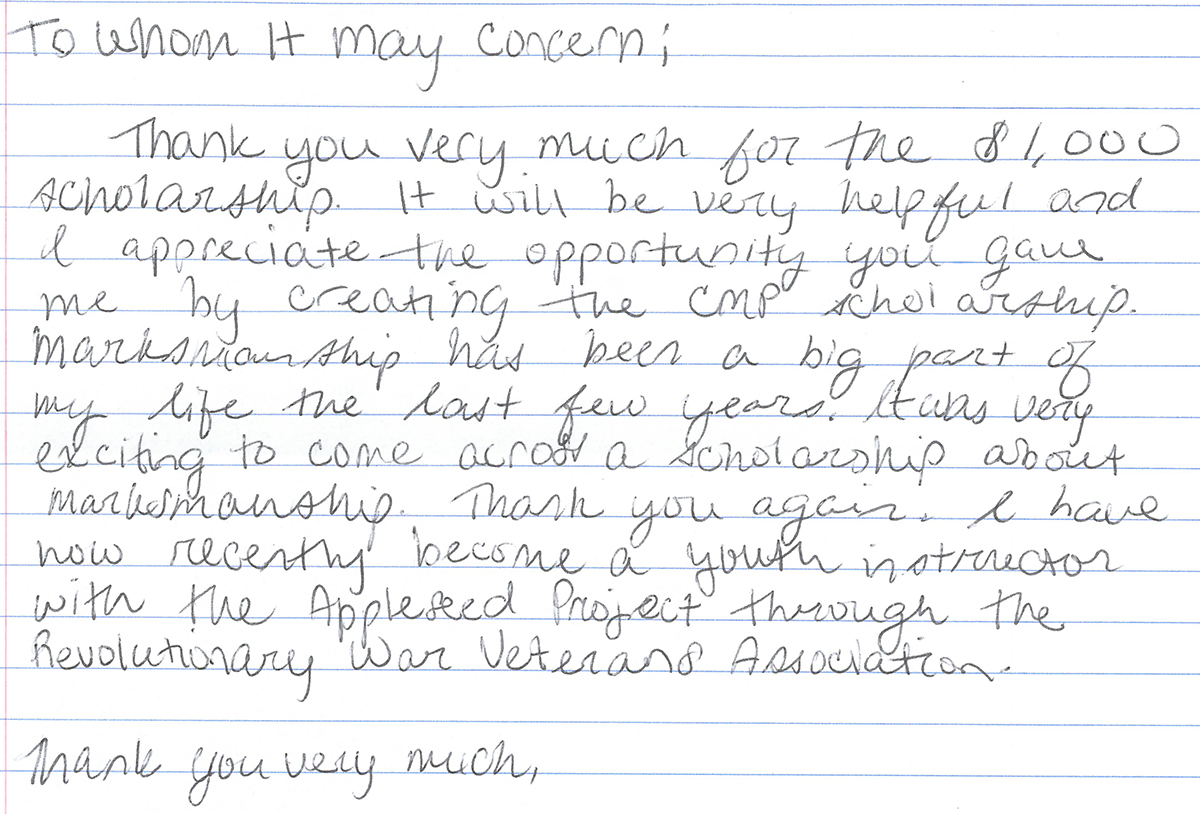 To Whom It May Concern;
Thank you very much for the $1,000
scholarship. It will be very helpful and
I appreciate the opportunity you gave
me by creating the CMP scholarship.
Marksmanship has been a big part of
my life the last few years. It was very
exciting to come across a scholarship about
marksmanship. Thank you again. I have
now recently become a youth instructor
with the Appleseed Project through the
Revolutionary War Veterans Association.
Thank you very much,